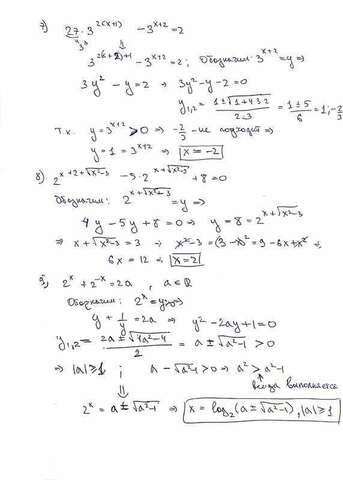 7) 27·3^{2(x+1)} - 3^{x+2} = 2
3^3
3^{2(x+2)+1} - 3^{x+2} = 2; Обозначим: 3^{x+2} = y ⇒
3y² - y = 2 → 3y² - y - 2 = 0
y_{1,2} = (1 ± √(1+4·3·2))/(2·3) = (1±5)/6 = 1; -2/3
Т.к. y = 3^{x+2} > 0 ⇒ -2/3 - не подходит ⇒
y = 1 = 3^{x+2} ⇒ x = -2
8) 2^{x+2+√(x²-3)} - 5·2^{x+√(x²-3)} + 8 = 0
Обозначим: 2^{x+√(x²-3)} = y ⇒
4y - 5y + 8 = 0 ⇒ y = 8 = 2^{x+√(x²-3)}
⇒ x + √(x²-3) = 3 ⇒ x² - 3 = (3-x)² = 9 - 6x + x² ⇒
6x = 12 ⇒ x = 2
9) 2^x + 2^{-x} = 2a, a ∈ R
Обозначим: 2^x = y ⇒
y + 1/y = 2a ⇒ y² - 2ay + 1 = 0
y_{1,2} = (2a ± √(4a²-4))/2 = a ± √(a²-1) > 0
⇒ |a| ≥ 1 ; a - √(a²-1) > 0 ⇒ a² > a² - 1
всегда выполняется
2^x = a ± √(a²-1) ⇒ x = log₂(a ± √(a²-1)), |a| ≥ 1